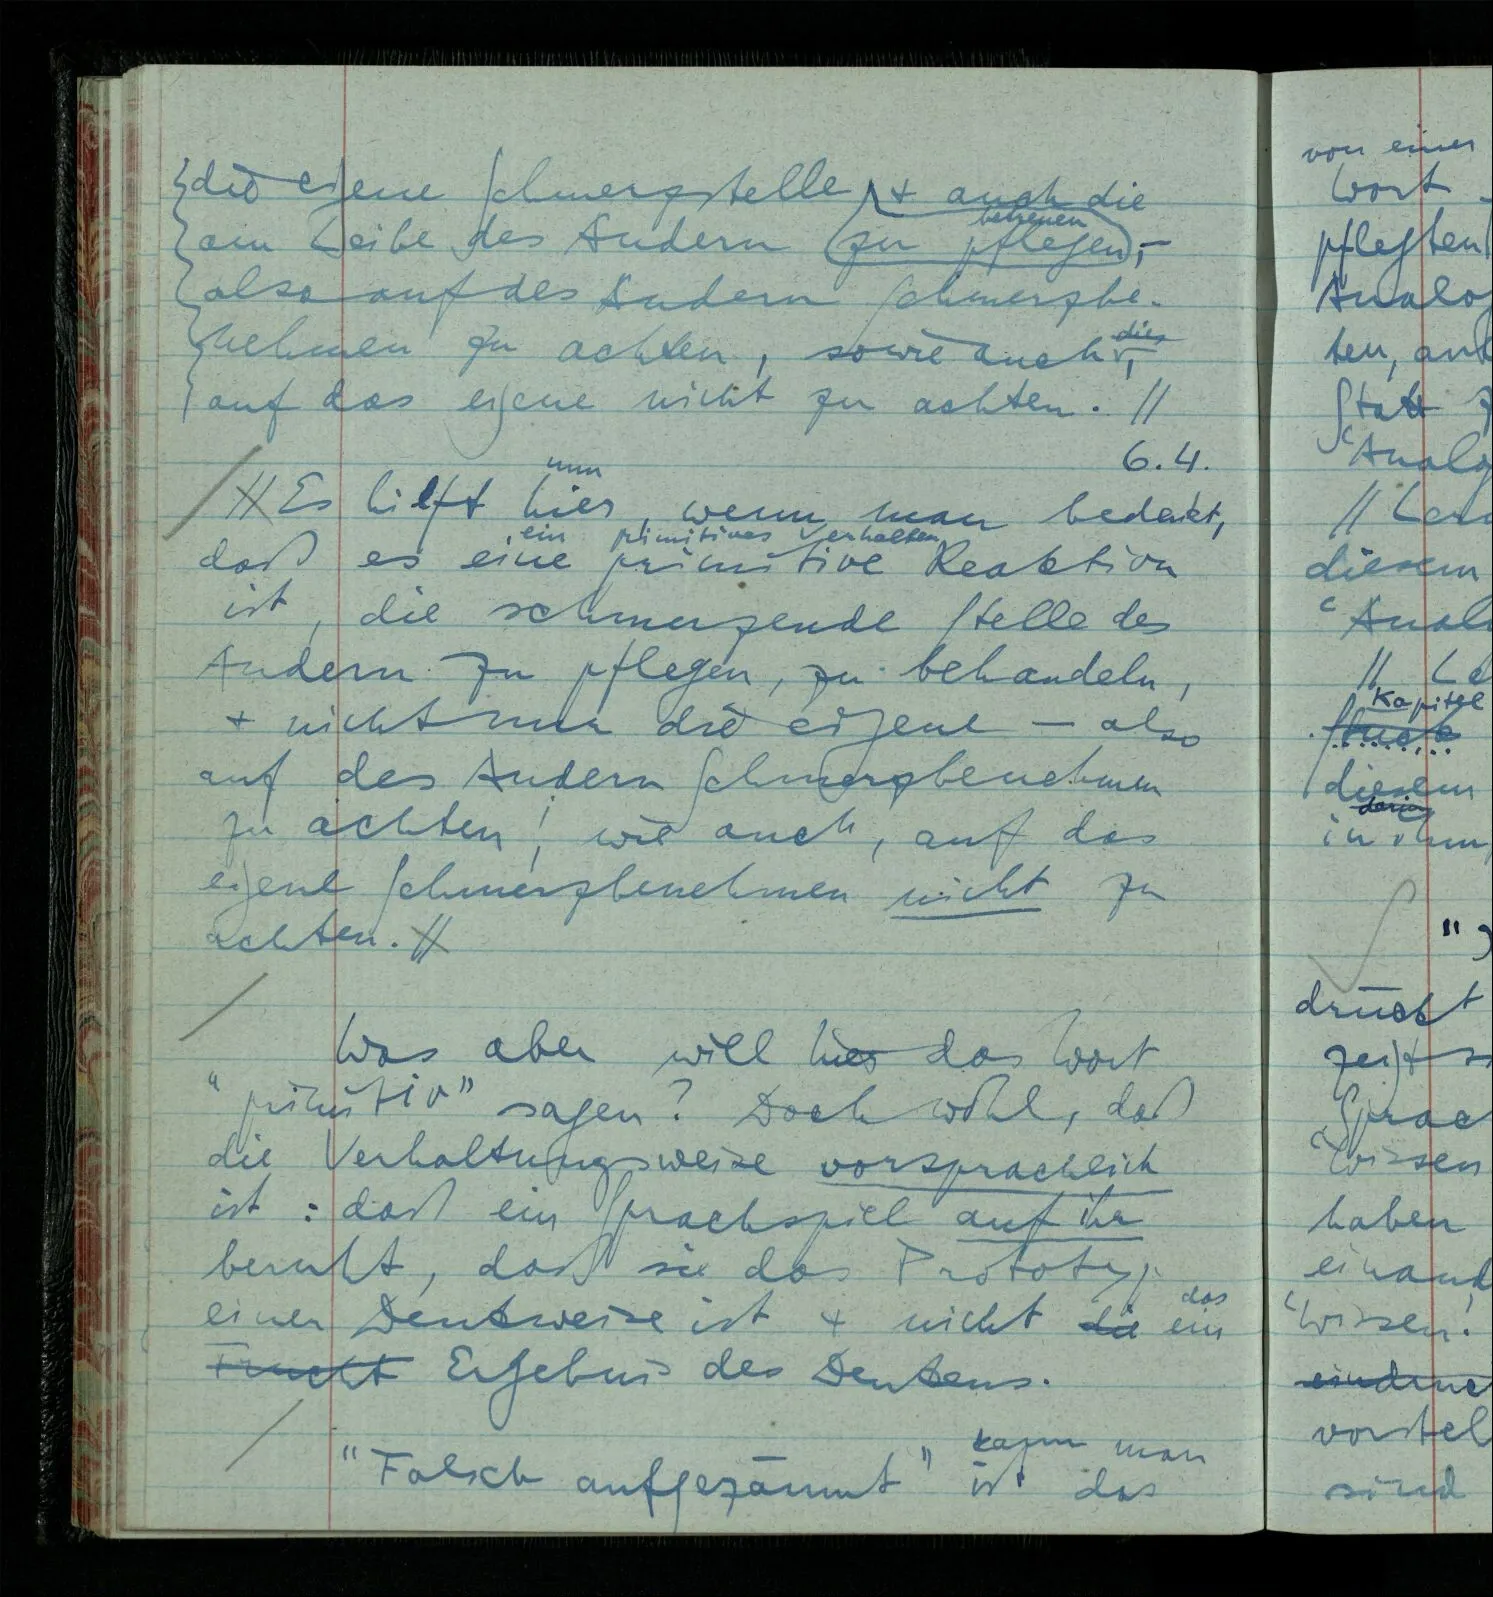 die eigene Schmerzstelle, + auch die
am Leibe des Andern betreuen (zu pflegen), –
also auf des Andern Schmerzbe-
nehmen zu achten, sowie auch dies,
auf das eigene nicht zu achten. //
6.4.
// Es hilft hier nun, wenn man bedenkt,
ein primitives Verhalten
daß es eine primitive Reaktion
ist, die schmerzende Stelle des
Andern zu pflegen, zu behandeln,
+ nicht nur die eigene – also
auf des Andern Schmerzbenehmen
zu achten, wie auch, auf das
eigene Schmerzbenehmen nicht zu
achten. //
Was aber will hier das Wort
"primitiv" sagen? Doch wohl, daß
die Verhaltungsweise vorsprachlich
ist: daß ein Sprachspiel auf ihr
beruht, daß sie das Prototyp
das
einer Denkweise ist + nicht die ein
Frucht Ergebnis des Denkens.
kann man
"Falsch aufgezäumt" ist das
von einer
Wort
pflegten
Analo
ten, ant
statt z
'Analo
// 
diesem
'Anal
//
Kapitel
diesem
darin
in ihm,
"
drückt
zeigt s
Sprac
'Wissen
haben
einand
'Wissen'
eindruc
vorstel
sind